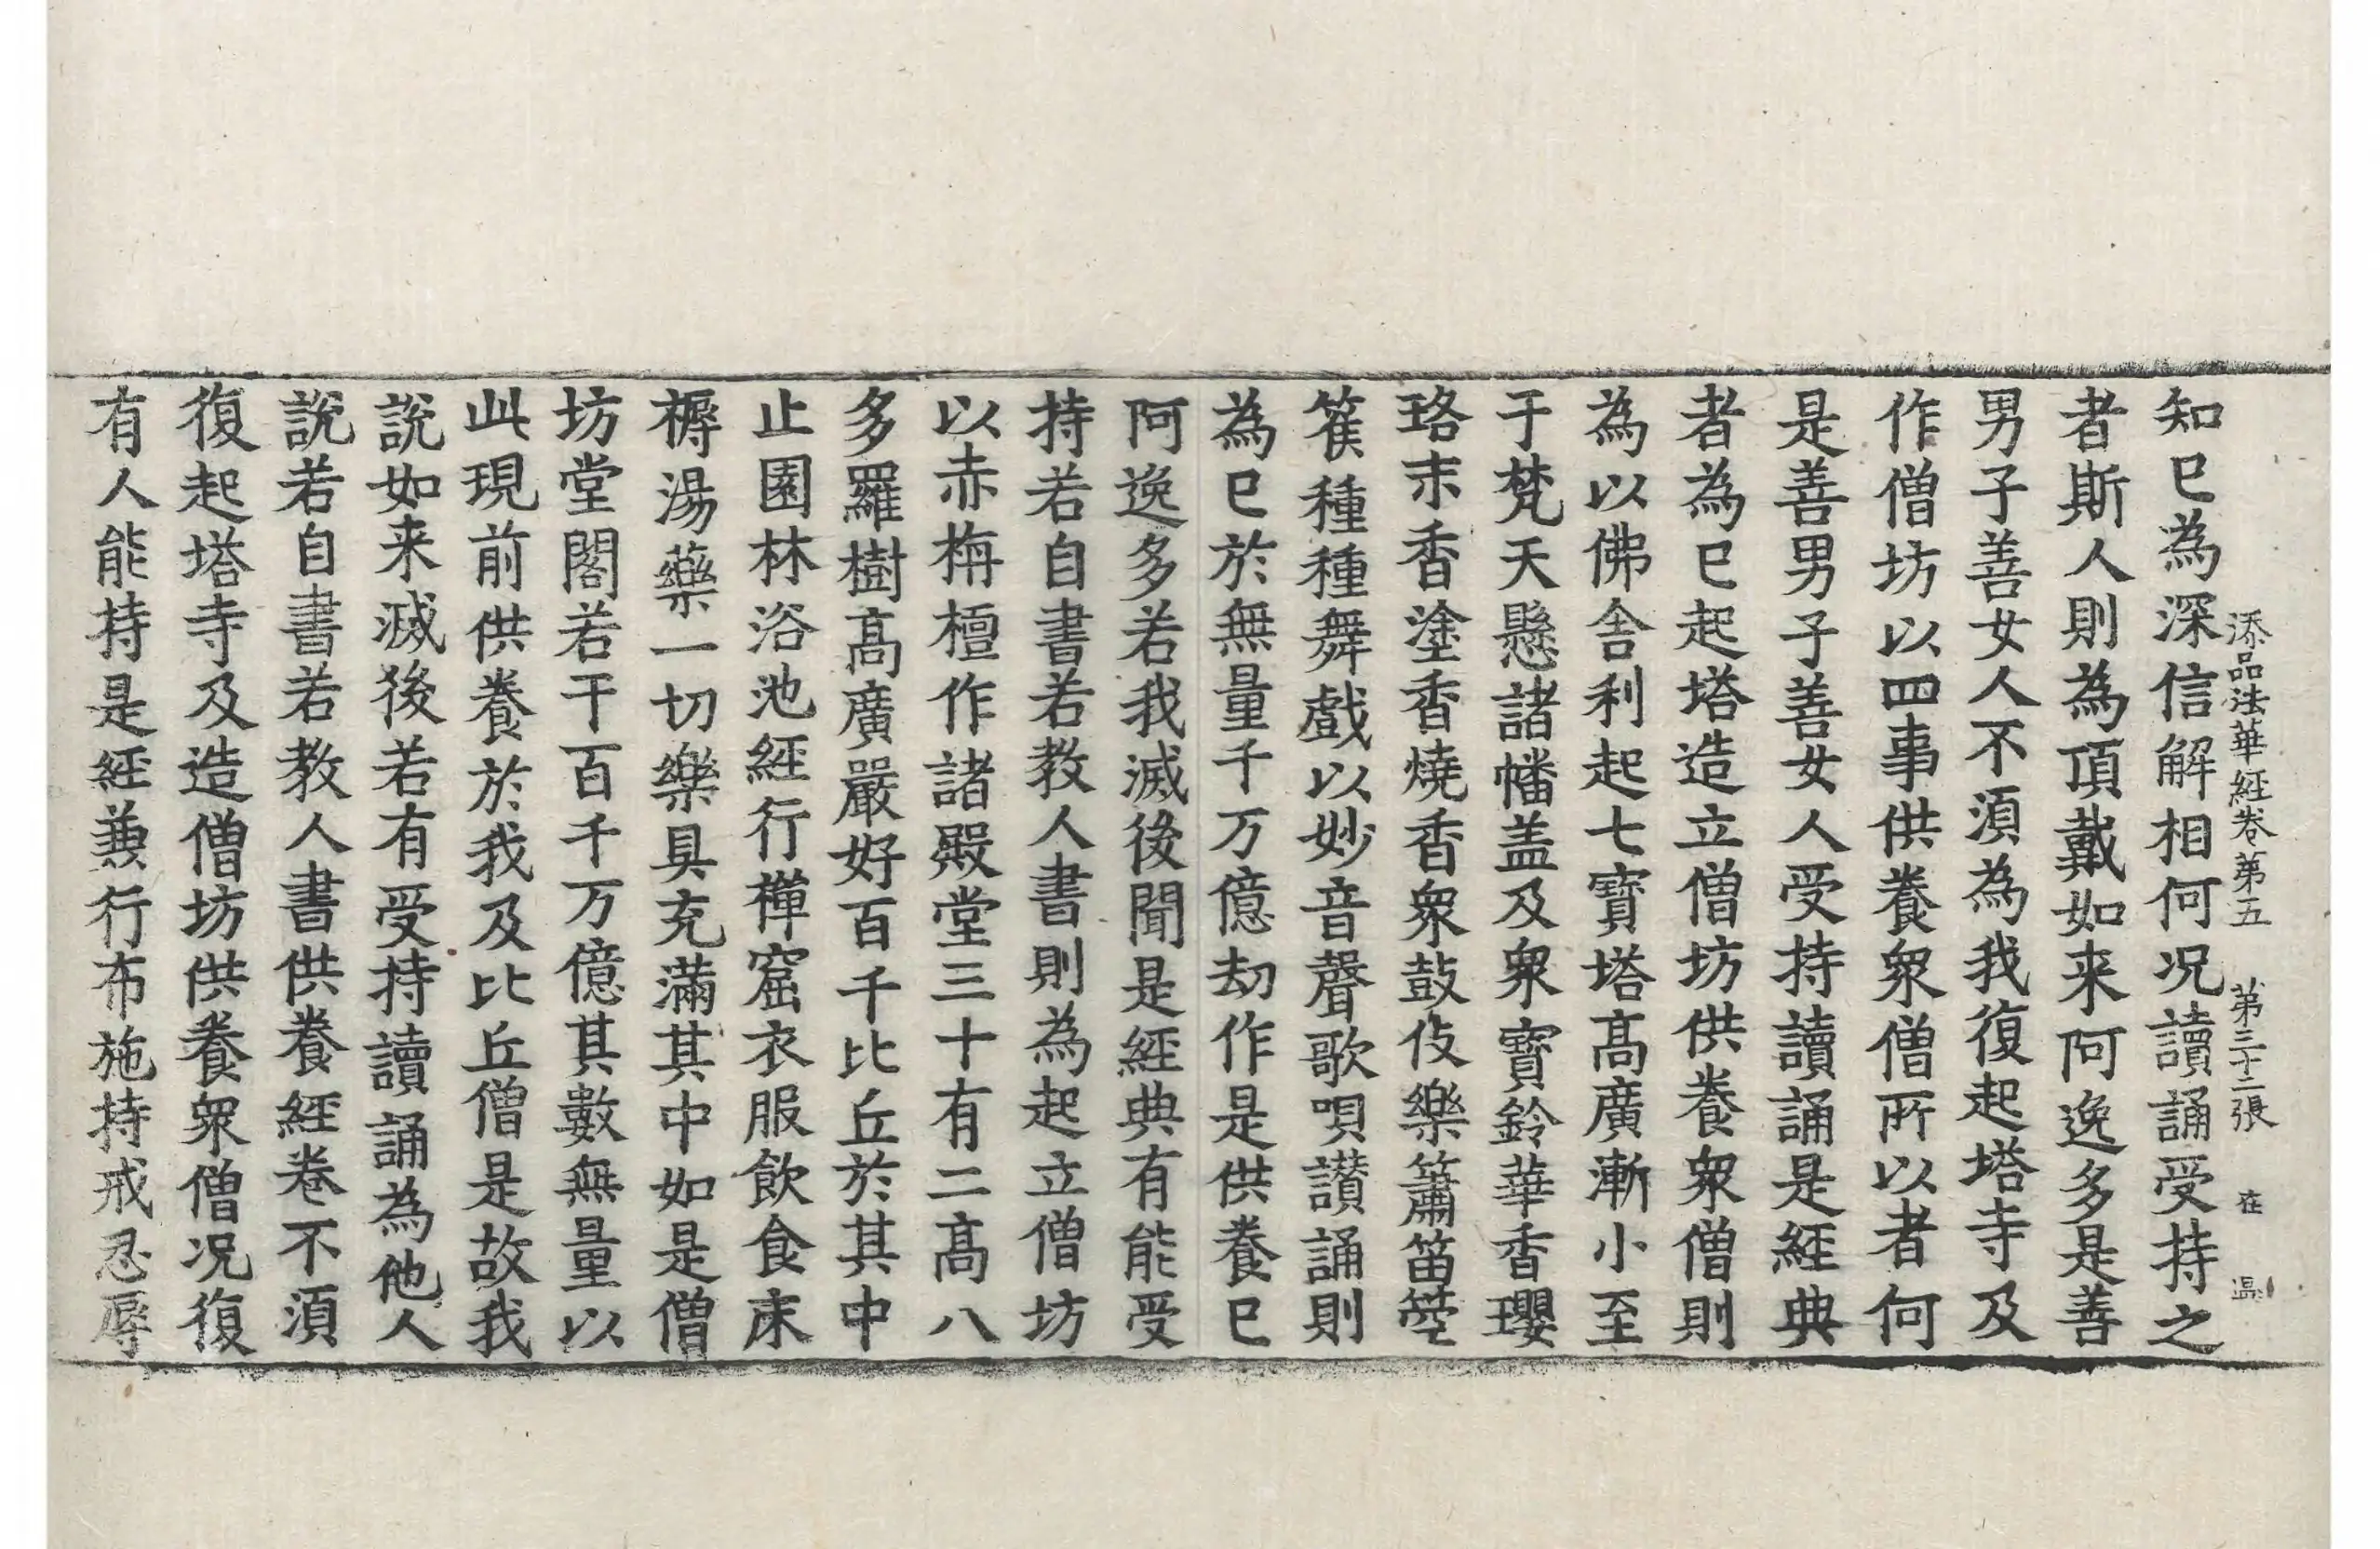 添品法華經卷第五 第三十二張 在 温
知已為深信解相何况讀誦受持之
者斯人則為頂戴如来阿逸多是善
男子善女人不湏為我復起塔寺及
作僧坊以四事供養衆僧所以者何
是善男子善女人受持讀誦是經典
者為已起塔造立僧坊供養衆僧則
為以佛舍利起七寶塔髙廣漸小至
于梵天懸諸幡盖及衆寶鈴華香瓔
珞末香塗香燒香衆鼓伎樂簫笛箜
篌種種舞戲以妙音聲歌唄讃誦則
為已於無量千万億劫作是供養已
阿逸多若我滅後聞是經典有能受
持若自書若教人書則為起立僧坊
以赤栴檀作諸殿堂三十有二髙八
多羅樹髙廣嚴好百千比丘於其中
止園林浴池經行禪窟衣服飲食床
褥湯藥一切樂具充滿其中如是僧
坊堂閣若干百千万億其數無量以
此現前供養於我及比丘僧是故我
説如来滅後若有受持讀誦為他人
說若自書若教人書供養經卷不湏
復起塔寺及造僧坊供養衆僧况復
有人能持是經兼行布施持戒忍辱